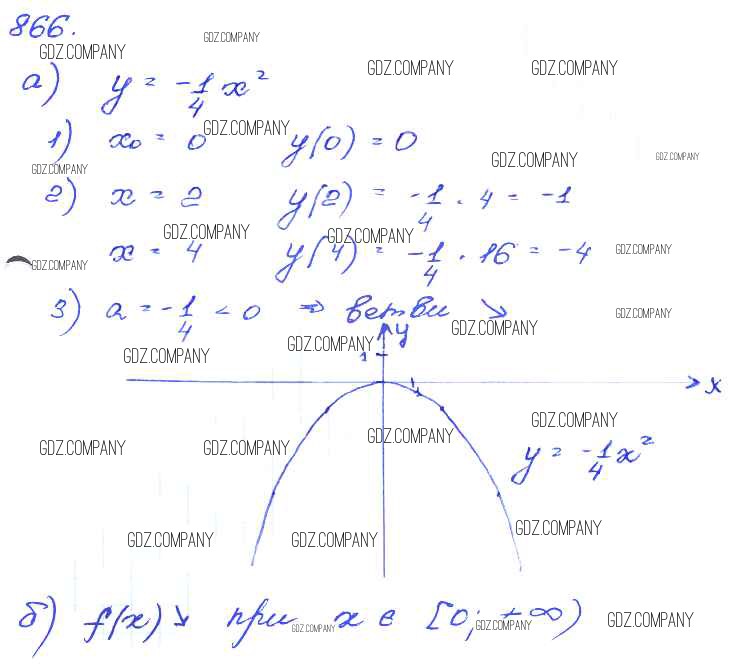 866.
GDZ.COMPANY GDZ.COMPANY
GDZ.COMPANY GDZ.COMPANY
а) y = -1/4 x²
1) x₀ = 0 y(0) = 0
GDZ.COMPANY
GDZ.COMPANY GDZ.COMPANY GDZ.COMPANY
2) x = 2 y(2) = -1/4 · 4 = -1
GDZ.COMPANY GDZ.COMPANY
x = 4 y(4) = -1/4 · 16 = -4
GDZ.COMPANY GDZ.COMPANY
3) a = -1/4 < 0 => ветви ↘
GDZ.COMPANY
GDZ.COMPANY GDZ.COMPANY GDZ.COMPANY
y
1
x
1
GDZ.COMPANY
GDZ.COMPANY GDZ.COMPANY GDZ.COMPANY
y = -1/4 x²
GDZ.COMPANY GDZ.COMPANY GDZ.COMPANY
б) f(x) ↘ при x ∈ [0; +∞)
GDZ.COMPANY GDZ.COMPANY GDZ.COMPANY